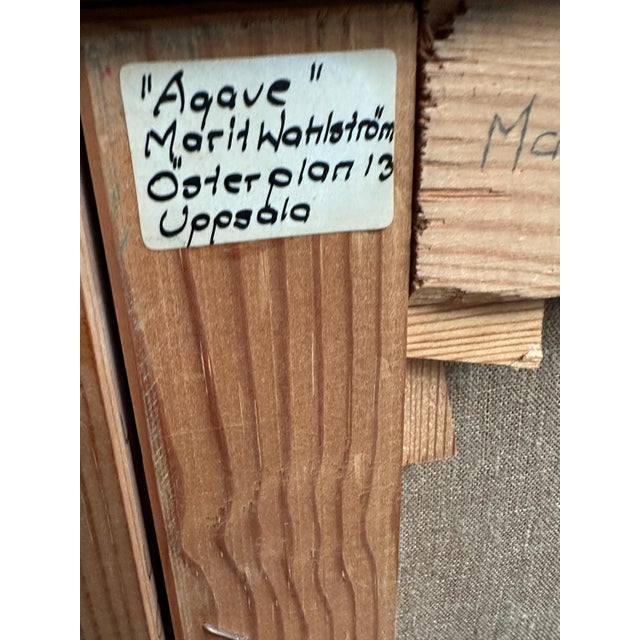 "Agave"
Marit Wahlström
Österplan 13
Uppsala
Ma